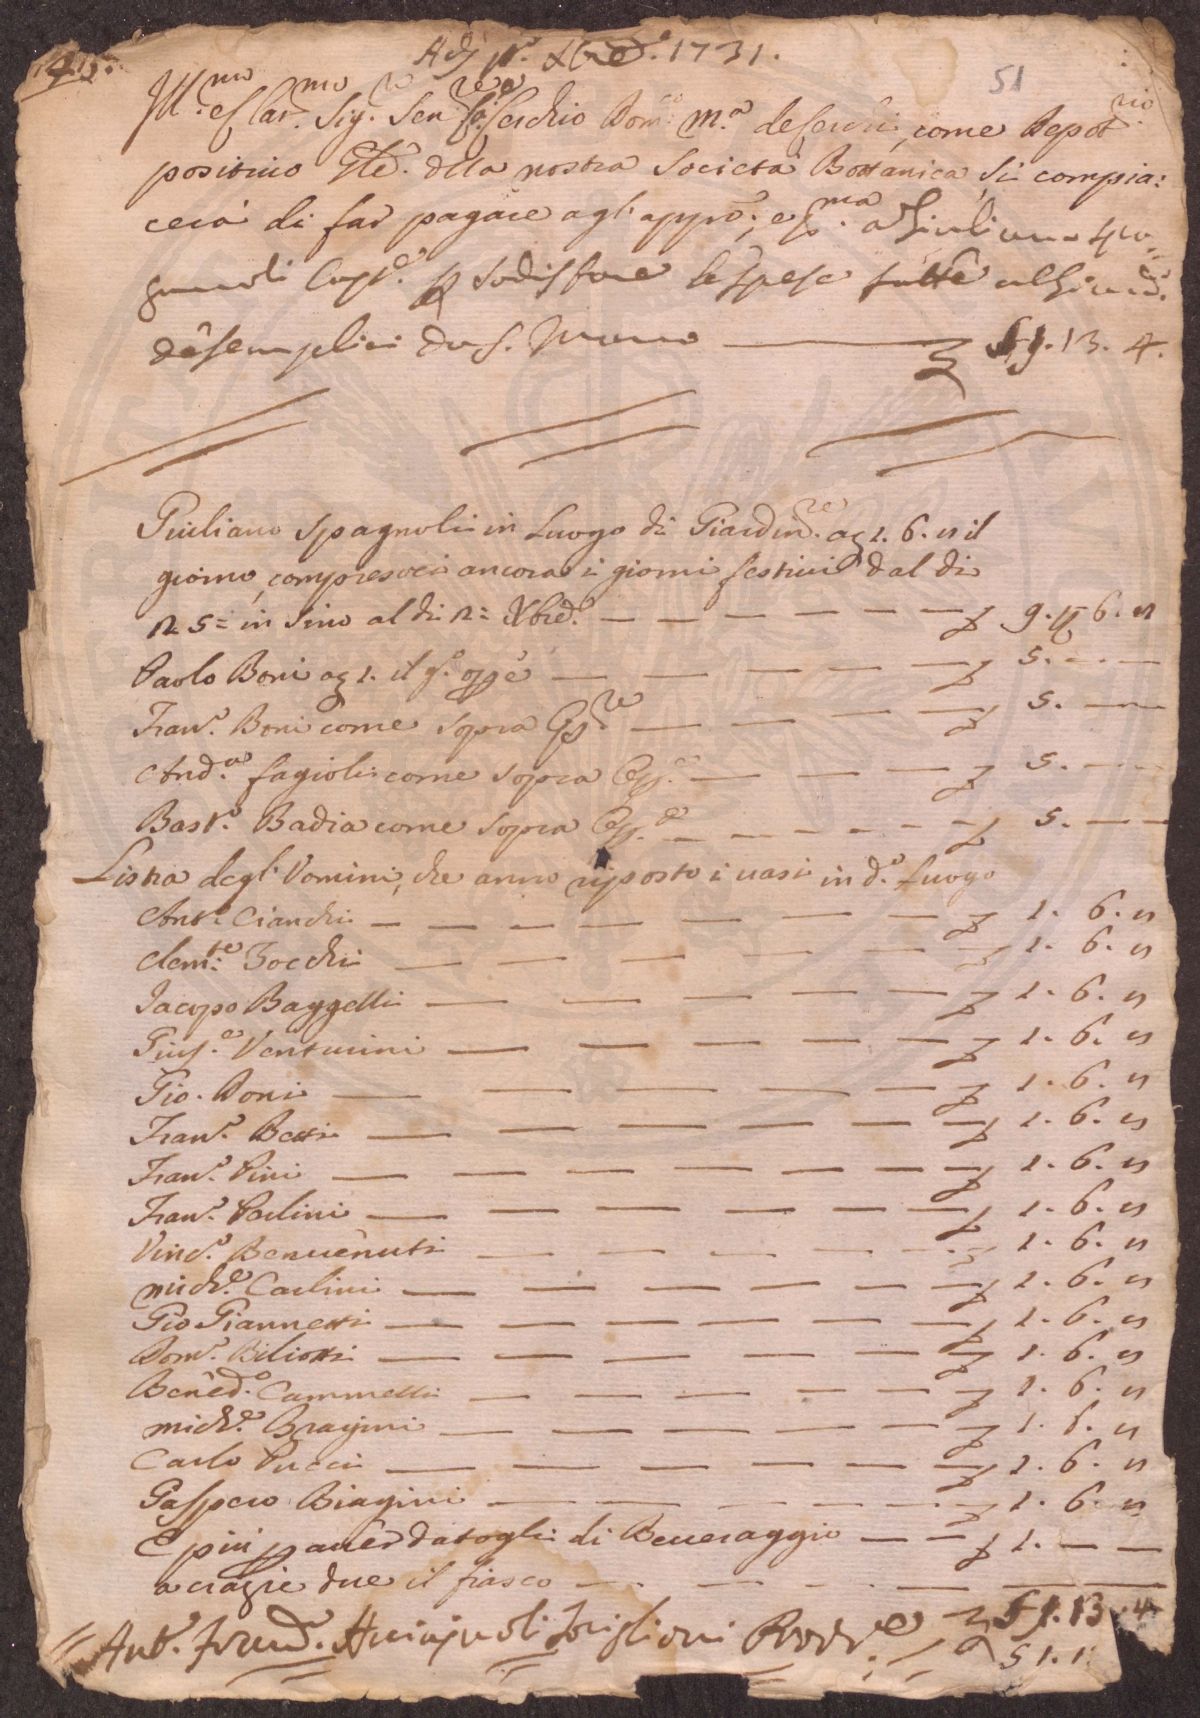 Adj p.º Xbre. 1731.
51
Ill.mo e Clar.mo Sig. Sen.re Serchio Dom.co M.a de Serchi, come Depot
positario Gle. della nostra Società Bottanica, si compia:
cerà di far pagare agl'appro; e p.ma a Giuliano Spa
gnuoli Cust.e p sodisfare le spese fatte al Giard.o
de semplici da S. Marco — 51. 13. 4.
Giuliano Spagnoli in Luogo di Giardin.re a 1. 6. 8 il
giorno, compresoci ancora i giorni festivi dal di
25= in sino al di 1= Xbre. — 9. 6. 8
Paolo Boni a 1. il g.º — 5. — —
Fran.º Boni come sopra — 5. — —
And.ª fagioli come sopra — 5. — —
Bast.º Badia come sopra — 5. — —
Listra degl'Vomini, che anno riposto i uasi in d.º Luogo
Ant.º Cianchi — 1. 6. 8
Clem.te Zocchi — 1. 6. 8
Iacopo Baggelli — 1. 6. 8
Gius.e Venturini — 1. 6. 8
Gio. Boni — 1. 6. 8
Fran.º Betti — 1. 6. 8
Fran.º Pini — 1. 6. 8
Fran.º Paolini — 1. 6. 8
Vinc.º Benuenuti — 1. 6. 8
Mich.e Carlini — 1. 6. 8
Gio Giannetti — 1. 6. 8
Dom.º Biliotti — 1. 6. 8
Bened.º Cammelli — 1. 6. 8
Mich.e Bragini — 1. 6. 8
Carlo Pucci — 1. 6. 8
Gaspero Biagini — 1. 6. 8
E piu p auer datogli di Beueraggio — 1. — —
a crazie due il fiasco —
51. 13. 4
Ant.º Franc.º Acciajuoli Toriglioni Prov.re
51. 1